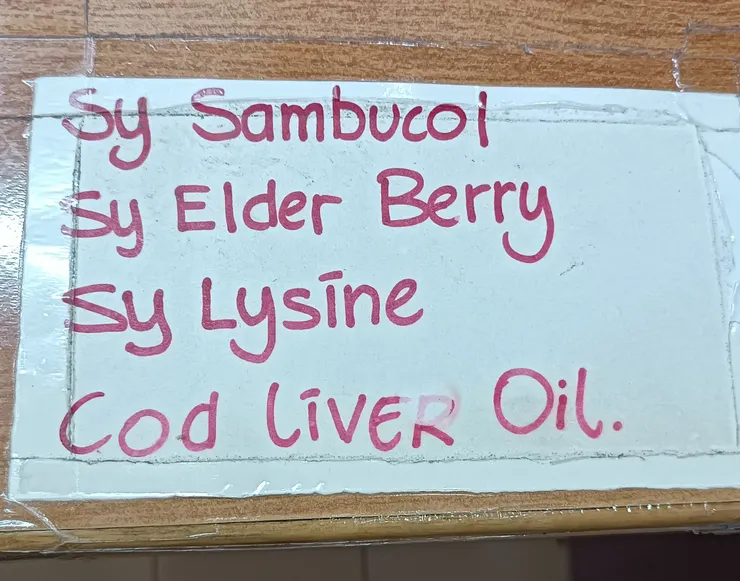 Sy Sambucol
Sy Elder Berry
Sy Lysine
Cod liver Oil.